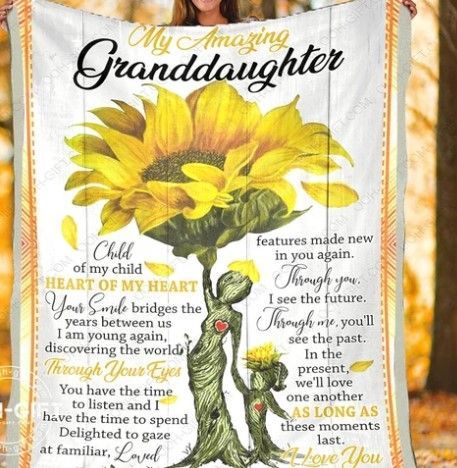 My Amazing
Granddaughter
Child
of my child
HEART OF MY HEART
Your Smile bridges the
years between us
I am young again,
discovering the world
Through Your Eyes
You have the time
to listen and I
have the time to spend
Delighted to gaze
at familiar, Loved
features made new
in you again.
Through you,
I see the future.
Through me, you'll
see the past.
In the
present,
we'll love
one another
AS LONG AS
these moments
last.
I Love You